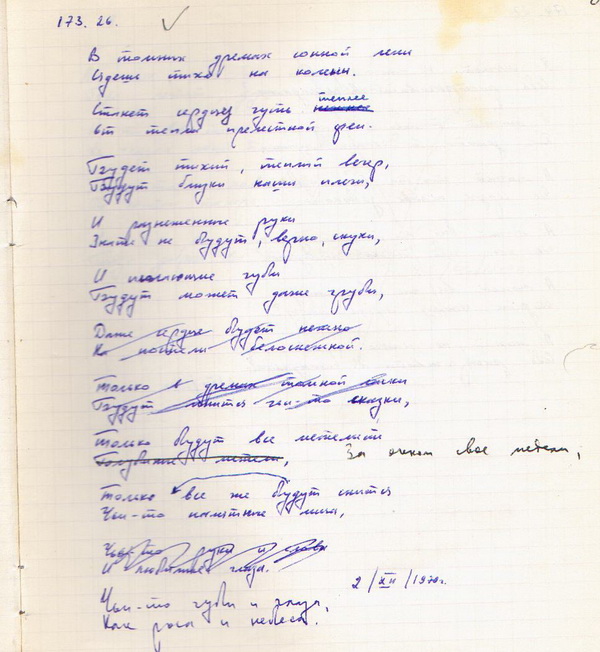 173. 26.
В томных дремах сонной лени
Сядешь тихо на колени.
Станет сердцу чуть теплее
От тепла прелестной феи.
Будет тихий, теплый вечер,
Будут близки наши плечи,
И разнеженные руки
Знать не будут, верно, скуки,
И пылающие губы
Будут может даже грубы,
Даже сердце будет нежно
На постели белоснежной.
Только в дремах томной сказки
Будут чьи-то
Только будут все метелить
Голубые метели, За окном все метели,
Только все же будут снится
Чьи-то памятные лица,
Чьи-то руки и слова
И любимые глаза.
2/XII/1970г.
Чьи-то губы и глаза,
Как роса и небеса.